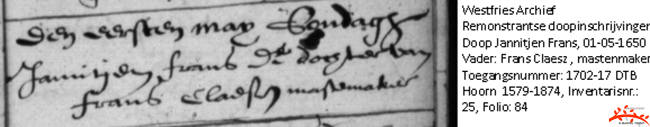 den eersten may Sondagh
Jannitjen frans De dogter van
frans Claessen mastemaker
Westfries Archief
Remonstrantse doopinschrijvinger
Doop Jannitjen Frans, 01-05-1650
Vader: Frans Claesz , mastenmaker
Toegangsnummer: 1702-17 DTB
Hoorn 1579-1874, Inventarisnr.:
25, Folio: 84